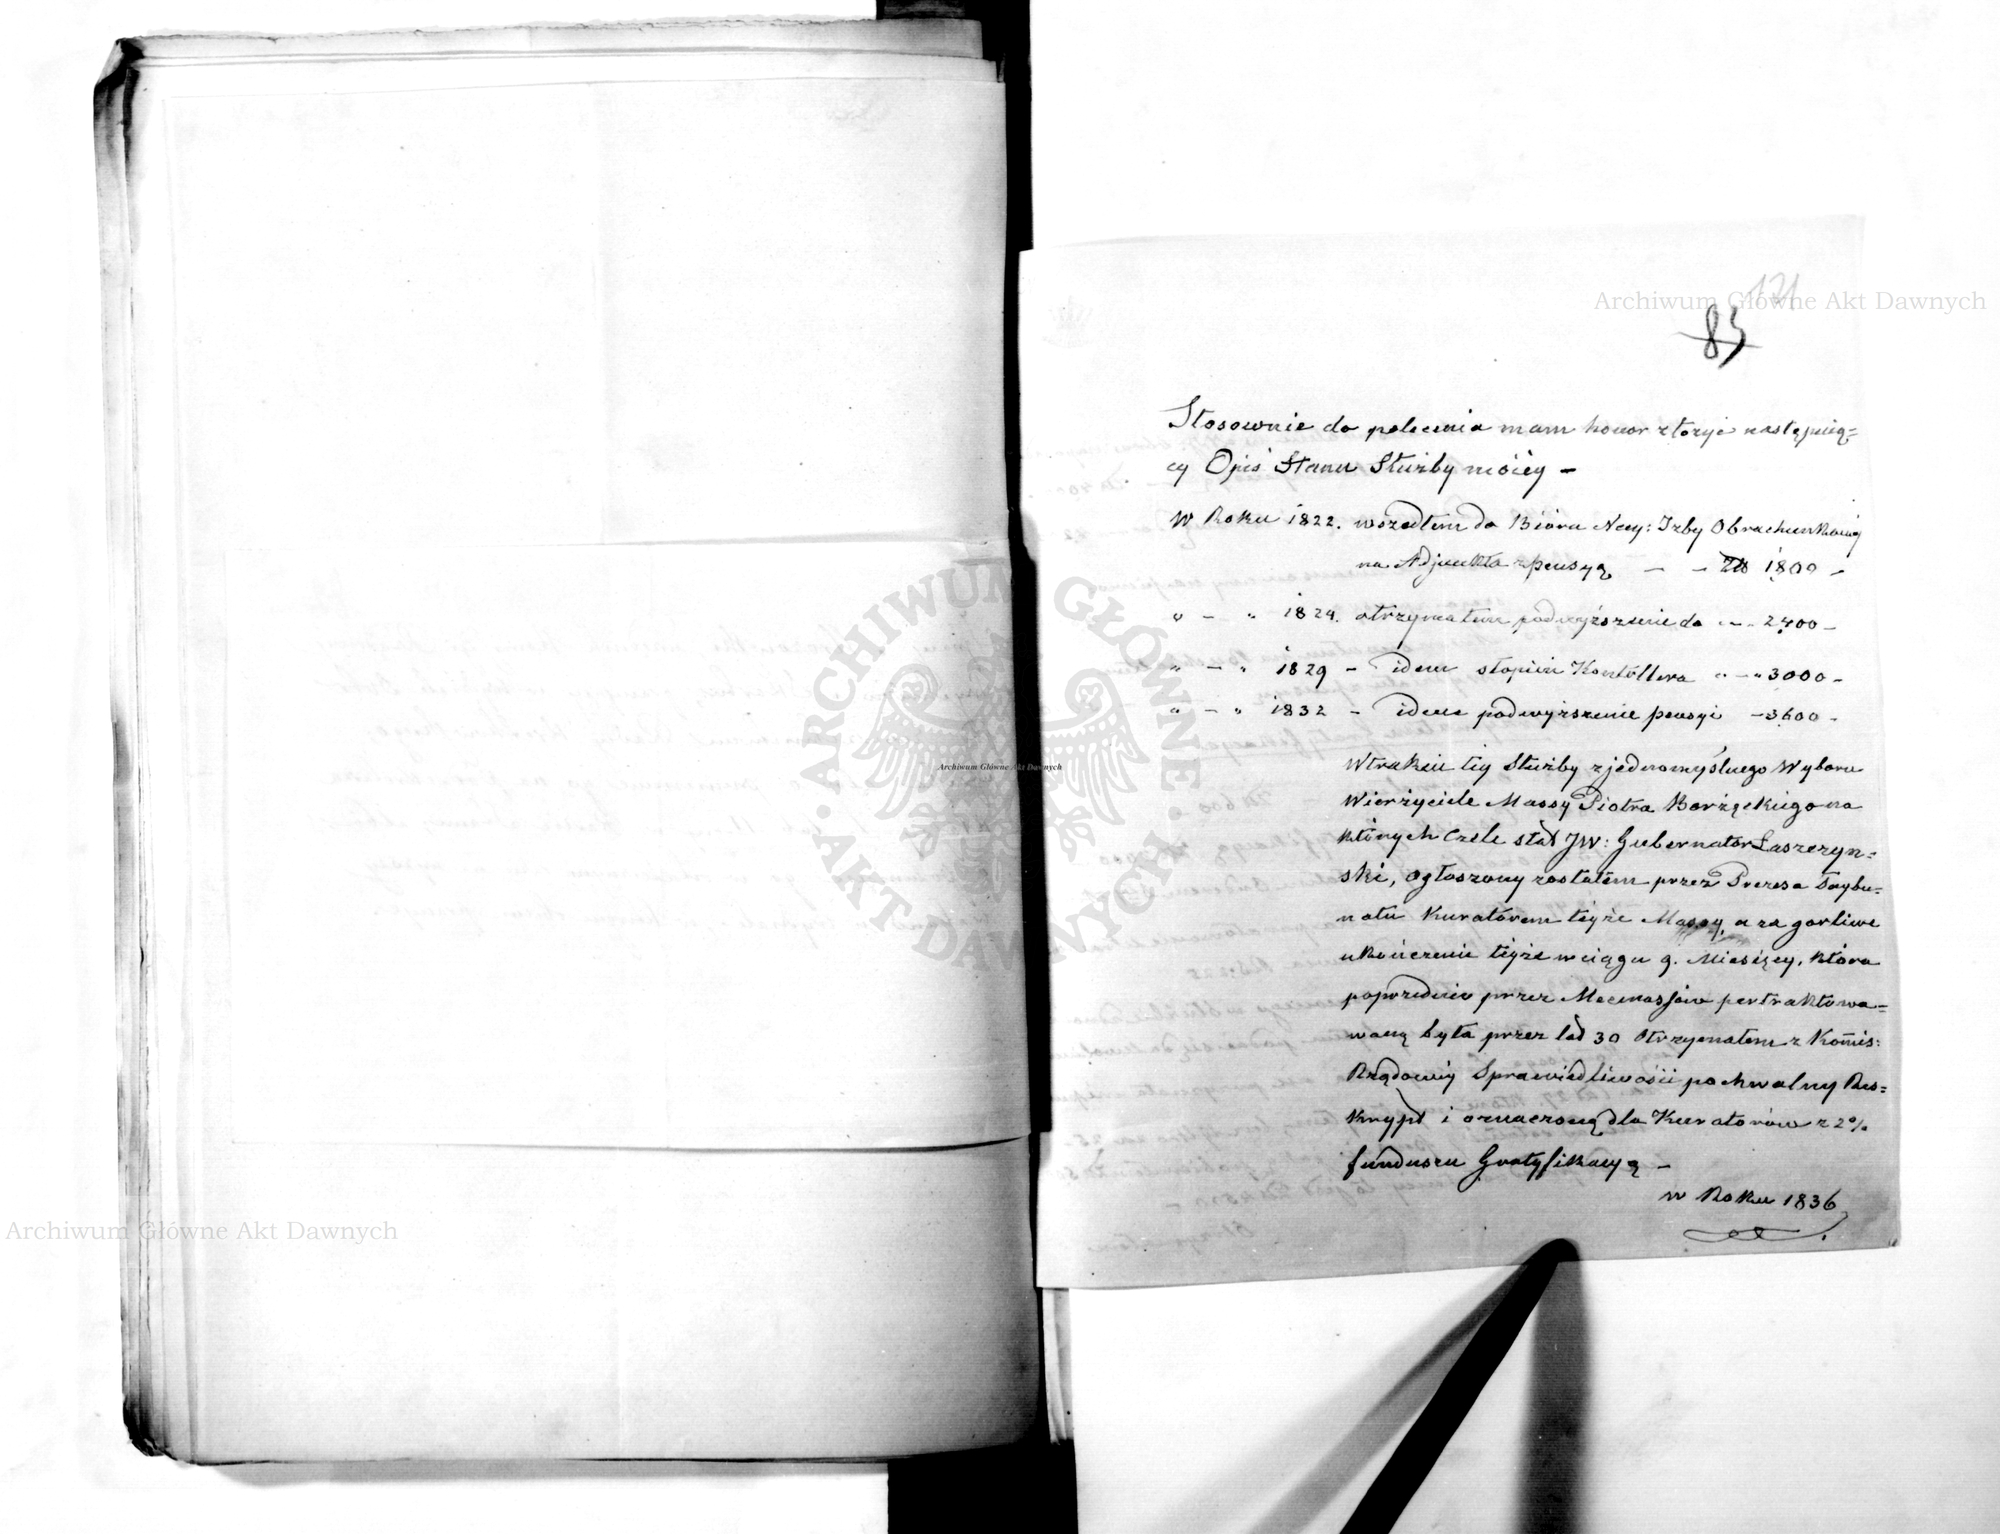 121
83
Stosownie do polecenia mam honor złożyć następuią=
cy Opis Stanu Służby moiéy –
W Roku 1822. wszedłem do Bióra Nay: Izby Obrachunkowéj
na Adjunkta z pensyą – – Zł 1800 –
„ – „ 1824. otrzymałem podwyższenie do „ – „ 2400 –
„ – „ 1829 – idem stopień Kontollera „ – „ 3000 –
„ – „ 1832 – idem podwyższenie pensyi – 3600 –
W trakcie téy Służby z jednomyślnego Wyboru
Wierzycieli Massy Piotra Borzęckiego na
których czele stał JW: Gubernator Łaszczyn=
ski, ogłoszony zostałem przez Prezesa Trybu=
nału Kuratorem téyże Massy, a za gorliwe
ukończenie téyże w ciągu 9. Miesięcy, która
poprzednio przez Mecenassów pertraktowa=
waną była przez lat 30 Otrzymałem z Komis:
Rządowéy Sprawiedliwości pochwalny Res=
krypt i oznaczoną dla Kuratorów z 2%
funduszu Gratyfikacyą –
w Roku 1836
Archiwum Główne Akt Dawnych
Archiwum Główne Akt Dawnych
Archiwum Główne Akt Dawnych
ARCHIWUM GŁÓWNE
AKT DAWNYCH